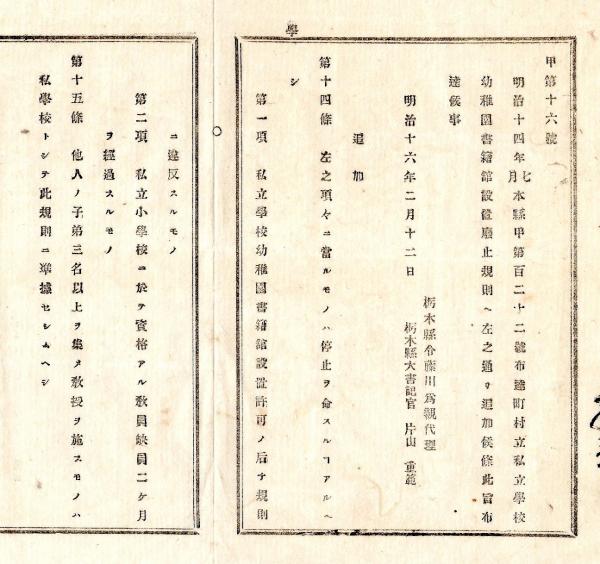 學
甲第十六號
明治十四年七月本縣甲第百二十二號布達町村立私立學校
幼稚園書籍館設置廢止規則ヘ左之通リ追加候條此旨布
達候事
明治十六年二月十二日
栃木縣令藤川爲親代理
栃木縣大書記官 片山 重範
追加
第十四條 左之項々ニ當ルモノハ停止ヲ命スルヿアルヘ
シ
第一項 私立學校幼稚園書籍館設置許可ノ后テ規則
ニ違反スルモノ
第二項 私立小學校ニ於テ資格アル敎員缺員二ケ月
ヲ經過スルモノ
第十五條 他人ノ子弟三名以上ヲ集メ敎授ヲ施スモノハ
私學校トシテ此規則ニ準據セシムヘシ